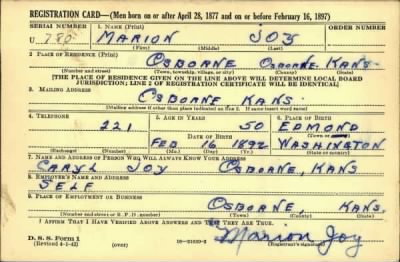 REGISTRATION CARD—(Men born on or after April 28, 1877 and on or before February 16, 1897)
SERIAL NUMBER 1. NAME (Print) ORDER NUMBER
U 780 MARION JOY
(First) (Middle) (Last)
2. PLACE OF RESIDENCE (Print)
OSBORNE OSBORNE KANS.
(Number and street) (Town, township, village, or city) (County) (State)
[THE PLACE OF RESIDENCE GIVEN ON THE LINE ABOVE WILL DETERMINE LOCAL BOARD
JURISDICTION; LINE 2 OF REGISTRATION CERTIFICATE WILL BE IDENTICAL]
3. MAILING ADDRESS
OSBORNE KANS.
[Mailing address if other than place indicated on line 2. If same insert word same]
4. TELEPHONE 5. AGE IN YEARS 6. PLACE OF BIRTH
221 50 EDMOND
DATE OF BIRTH (Town or county)
FEB 16 1892 WASHINGTON
(Exchange) (Number) (Mo.) (Day) (Yr.) (State or country)
7. NAME AND ADDRESS OF PERSON WHO WILL ALWAYS KNOW YOUR ADDRESS
CARYL JOY OSBORNE, KANS
8. EMPLOYER'S NAME AND ADDRESS
SELF
9. PLACE OF EMPLOYMENT OR BUSINESS
OSBORNE, KANS.
(Number and street or R. F. D. number) (Town) (County) (State)
I AFFIRM THAT I HAVE VERIFIED ABOVE ANSWERS AND THAT THEY ARE TRUE.
D. S. S. Form 1
(Revised 4-1-42) (over) Marion Joy
(Registrant's signature)